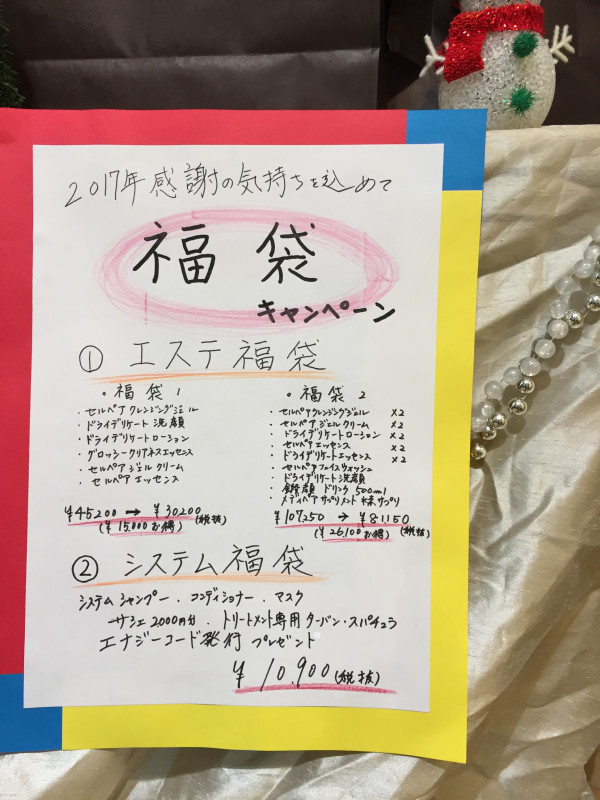 2017年 感謝の気持ちを込めて
福袋
キャンペーン
① エステ福袋
・福袋1
・セルペア クレンジングジェル
・ドライデリケート 洗顔
・ドライデリケートローション
・グロッシークリアネスエッセンス
・セルペア ジェル クリーム
・セルペア エッセンス
¥45,200 → ¥30,200 (税抜)
(¥15,000お得)
・福袋2
・セルペアクレンジングジェル ×2
・セルペア ジェルクリーム ×2
・ドライデリケートローション ×2
・セルペアエッセンス ×2
・ドライデリケートエッセンス ×2
・セルペアフェイスウォッシュ
・ドライデリケート洗顔
ドリンク 500ml
・メディペアサプリメント サプリ
¥107,250 → ¥81,150 (税抜)
(¥26,100お得)
② システム福袋
システム シャンプー . コンディショナー . マスク
サシェ2000円分 . トリートメント専用 ターバン・スパチュラ
エナジーコード発行 プレゼント
¥10,900 (税抜)